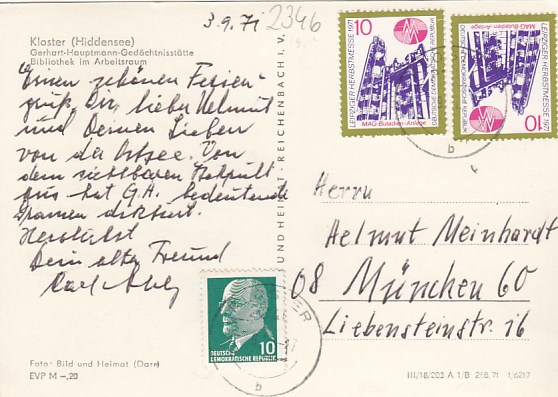 3.9.71
2346
Kloster (Hiddensee)
Gerhart-Hauptmann-Gedächtnisstätte
Bibliothek im Arbeitsraum
Einen schönen Ferien-
gruß Dir, lieber Helmut
und Deinen Lieben
von der Ostsee. Von
dem sichtbaren Stehpult
aus hat G.H. bedeutende
Dramen diktiert.
Herzlichst
Dein alter Freund
Karl
Foto: Bild und Heimat (Darr)
EVP M -,20
REICHENBACH I. V.
LEIPZIGER HERBSTMESSE 1971
10
MAG-Butadien-Anlage
LEIPZIGER HERBSTMESSE 1971
10
MAG-Butadien-Anlage
DEUTSCHE
DEMOKRATISCHE REPUBLIK
10
b
b
Herrn
Helmut Meinhardt
08 München 60
Liebensteinstr. 16
III/18/203 A 1/B 268/71 1/6217